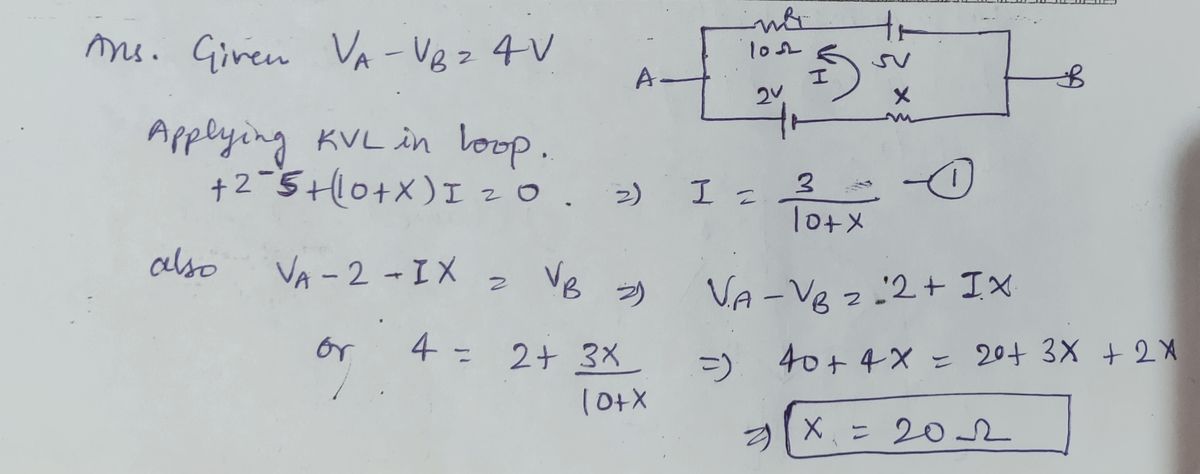 Ans. Given V_A - V_B = 4V
R
10Ω
5V
I
A
B
2V
X
Applying KVL in loop.
+2 - 5 + (10+X) I = 0. ⇒ I = 3/(10+X) — ①
also V_A - 2 - IX = V_B ⇒ V_A - V_B = 2 + IX
or 4 = 2 + 3X/(10+X) ⇒ 40 + 4X = 20 + 3X + 2X
⇒ X = 20Ω